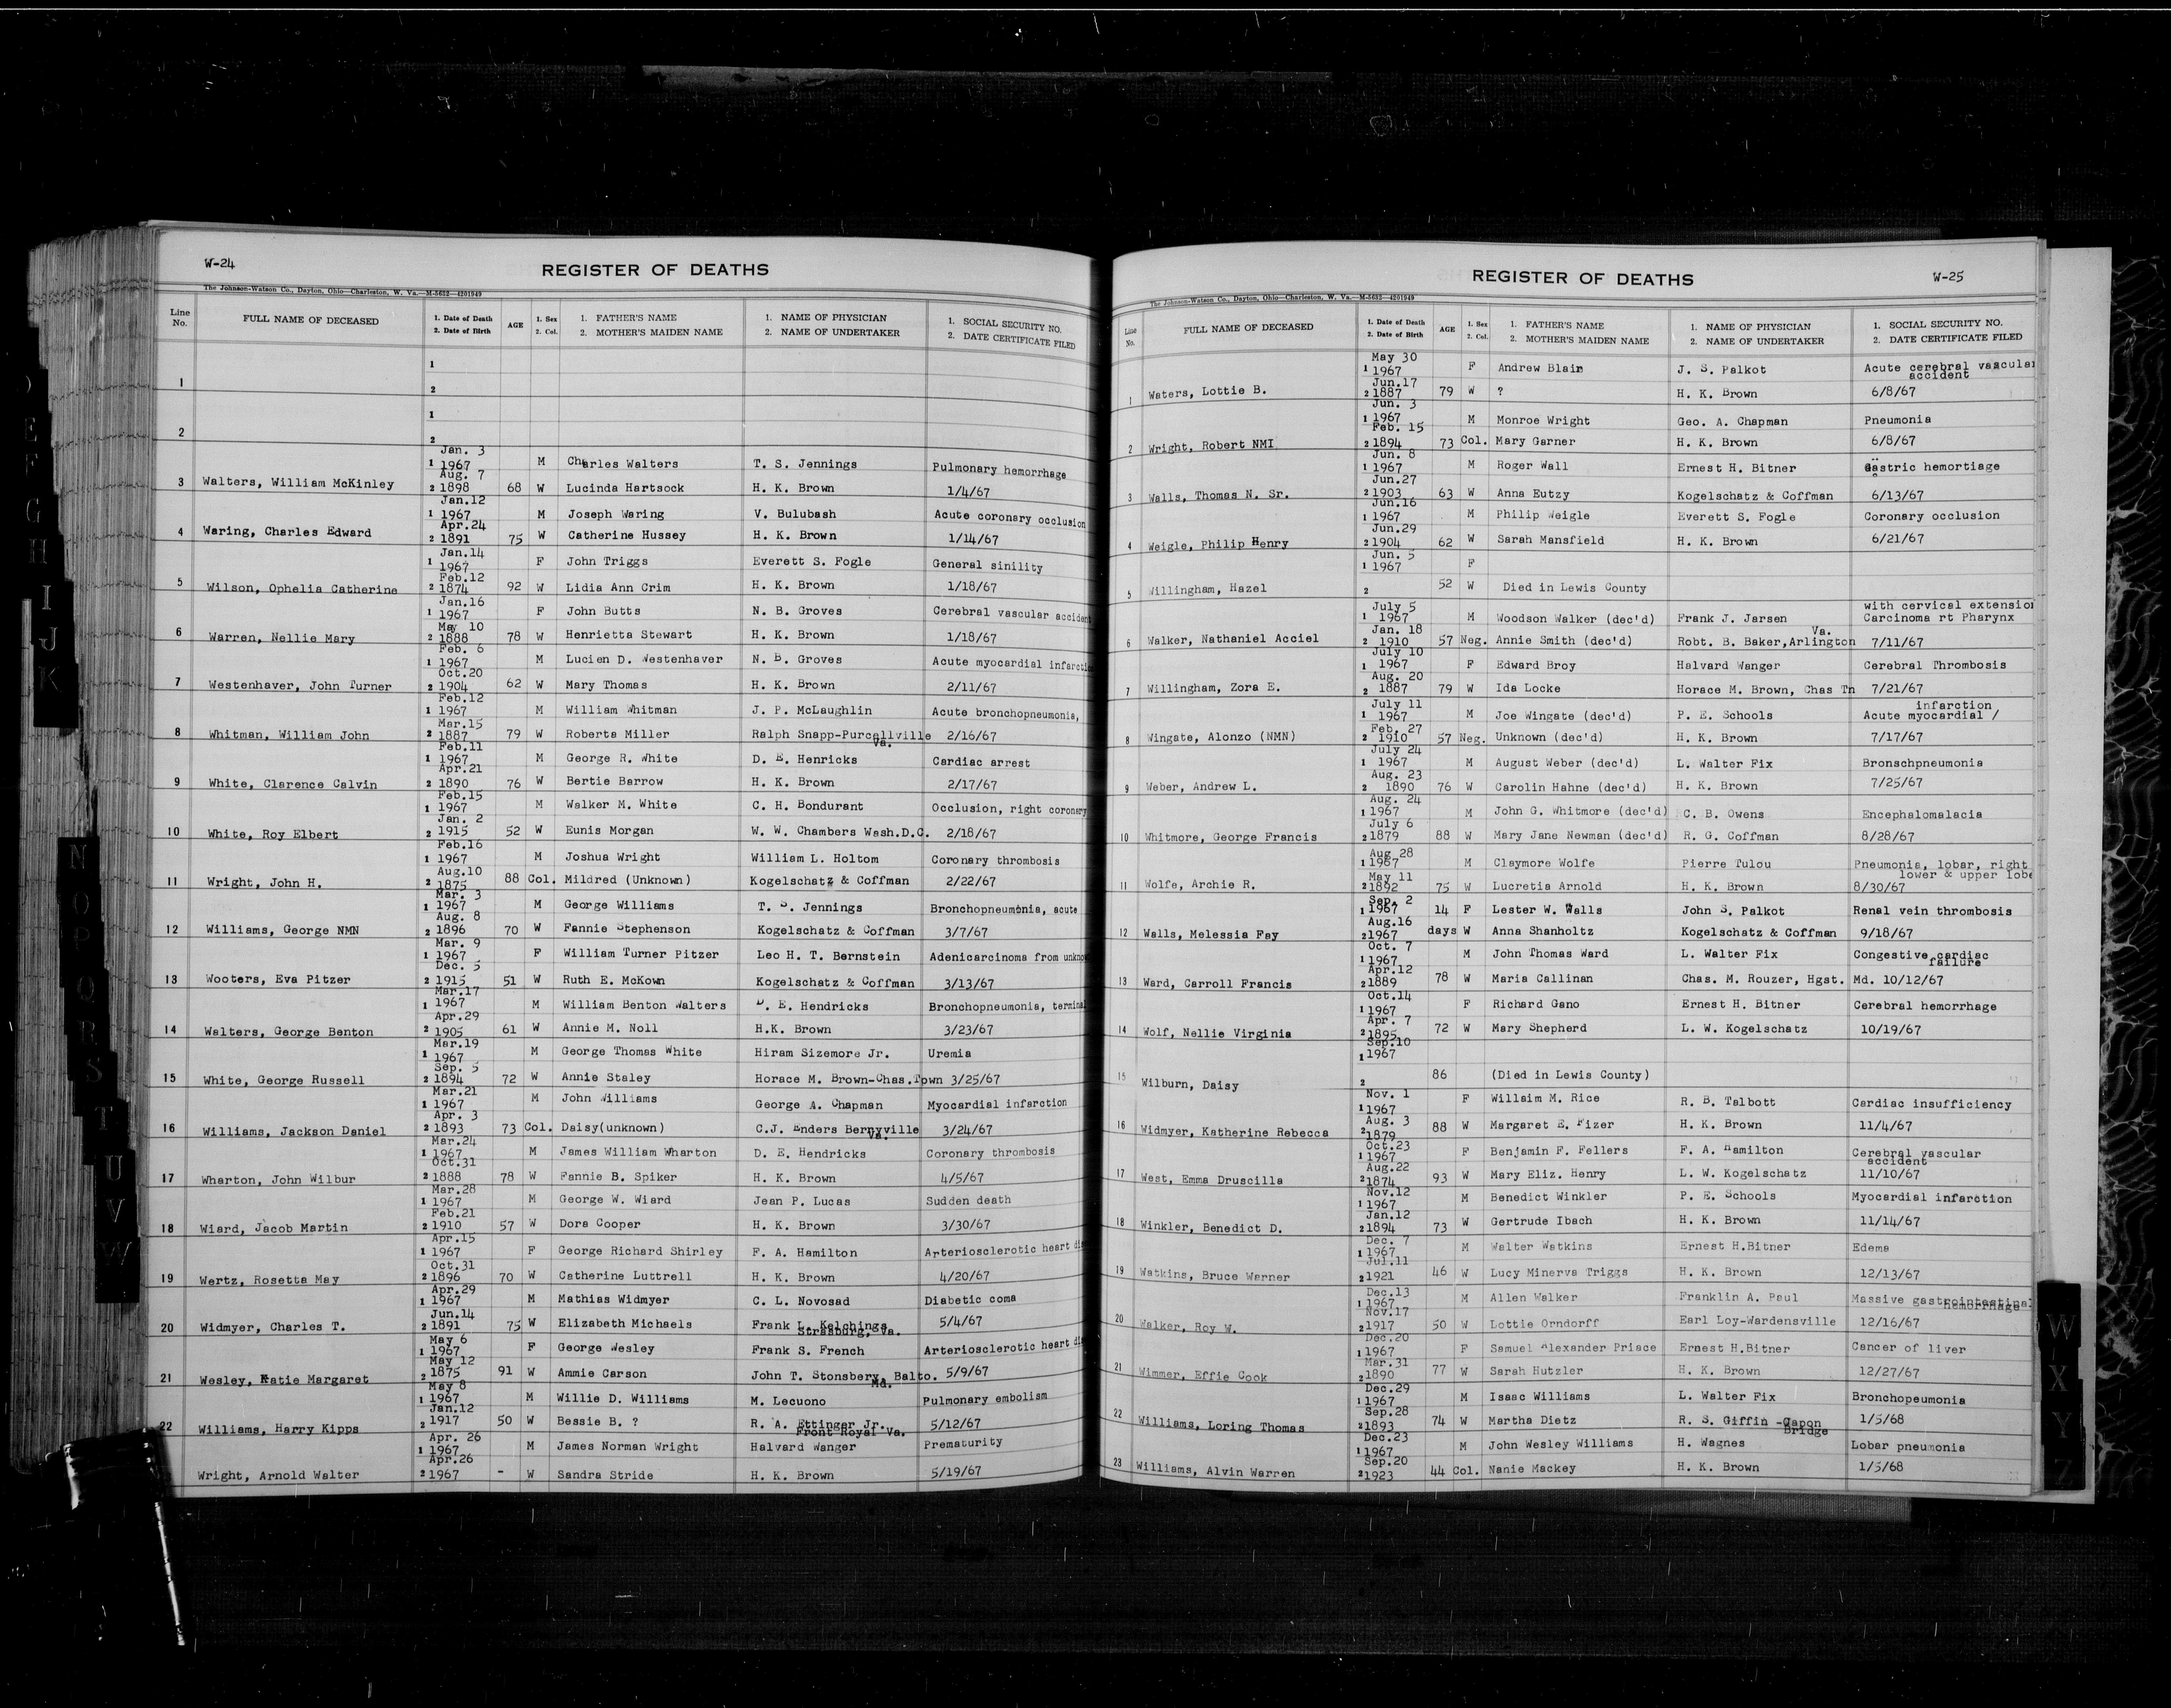 W-24
REGISTER OF DEATHS
The Johnson-Watson Co., Dayton, Ohio—Charleston, W. Va.—M-5632—4201949
Line No. FULL NAME OF DECEASED 1. Date of Death 2. Date of Birth AGE 1. Sex 2. Col. 1. FATHER'S NAME 2. MOTHER'S MAIDEN NAME 1. NAME OF PHYSICIAN 2. NAME OF UNDERTAKER 1. SOCIAL SECURITY NO. 2. DATE CERTIFICATE FILED
1
1
2
1
2
2
Jan. 3
1 1967 M Charles Walters T. S. Jennings Pulmonary hemorrhage
Aug. 7
3 Walters, William McKinley 2 1898 68 W Lucinda Hartsock H. K. Brown 1/4/67
Jan.12
1 1967 M Joseph Waring V. Bulubash Acute coronary occlusion
Apr.24
4 Waring, Charles Edward 2 1891 75 W Catherine Hussey H. K. Brown 1/14/67
Jan.14
1 1967 F John Triggs Everett S. Fogle General sinility
Feb.12
5 Wilson, Ophelia Catherine 2 1874 92 W Lidia Ann Crim H. K. Brown 1/18/67
Jan.16
1 1967 F John Butts N. B. Groves Cerebral vascular accident
May 10
6 Warren, Nellie Mary 2 1888 78 W Henrietta Stewart H. K. Brown 1/18/67
Feb. 6
1 1967 M Lucien D. Westenhaver N. B. Groves Acute myocardial infarctio
Oct.20
7 Westenhaver, John Turner 2 1904 62 W Mary Thomas H. K. Brown 2/11/67
Feb.12
1 1967 M William Whitman J. P. McLaughlin Acute bronchopneumonia,
Mar.15
8 Whitman, William John 2 1887 79 W Roberta Miller Ralph Snapp-Purcellville 2/16/67
Va.
Feb.11
1 1967 M George R. White D. E. Henricks Cardiac arrest
Apr.21
9 White, Clarence Calvin 2 1890 76 W Bertie Barrow H. K. Brown 2/17/67
Feb.15
1 1967 M Walker M. White C. H. Bondurant Occlusion, right coronary
Jan. 2
10 White, Roy Elbert 2 1915 52 W Eunis Morgan W. W. Chambers Wash.D.C. 2/18/67
Feb.16
1 1967 M Joshua Wright William L. Holtom Coronary thrombosis
Aug.10
11 Wright, John H. 2 1875 88 Col. Mildred (Unknown) Kogelschatz & Coffman 2/22/67
Mar. 3
1 1967 M George Williams T. S. Jennings Bronchopneumonia, acute
Aug. 8
12 Williams, George NMN 2 1896 70 W Fannie Stephenson Kogelschatz & Coffman 3/7/67
Mar. 9
1 1967 F William Turner Pitzer Leo H. T. Bernstein Adenicarcinoma from unkno
Dec. 5
13 Wooters, Eva Pitzer 2 1915 51 W Ruth E. McKown Kogelschatz & Coffman 3/13/67
Mar.17
1 1967 M William Benton Walters D. E. Hendricks Bronchopneumonia, terminal
Apr.29
14 Walters, George Benton 2 1905 61 W Annie M. Noll H.K. Brown 3/23/67
Mar.19
1 1967 M George Thomas White Hiram Sizemore Jr. Uremia
Sep. 5
15 White, George Russell 2 1894 72 W Annie Staley Horace M. Brown-Chas.Town 3/25/67
Mar.21
1 1967 M John Williams George A. Chapman Myocardial infarction
Apr. 3
16 Williams, Jackson Daniel 2 1893 73 Col. Daisy(unknown) C.J. Enders Berryville 3/24/67
Va.
Mar.24
1 1967 M James William Wharton D. E. Hendricks Coronary thrombosis
Oct.31
17 Wharton, John Wilbur 2 1888 78 W Fannie B. Spiker H. K. Brown 4/5/67
Mar.28
1 1967 M George W. Wiard Jean P. Lucas Sudden death
Feb.21
18 Wiard, Jacob Martin 2 1910 57 W Dora Cooper H. K. Brown 3/30/67
Apr.15
1 1967 F George Richard Shirley F. A. Hamilton Arteriosclerotic heart di
Oct.31
19 Wertz, Rosetta May 2 1896 70 W Catherine Luttrell H. K. Brown 4/20/67
Apr.29
1 1967 M Mathias Widmyer C. L. Novosad Diabetic coma
Jun.14
20 Widmyer, Charles T. 2 1891 75 W Elizabeth Michaels Frank L. Kelchings 5/4/67
Strasburg, Va.
May 6
1 1967 F George Wesley Frank S. French Arteriosclerotic heart di
May 12
21 Wesley, Katie Margaret 2 1875 91 W Ammie Carson John T. Stonsbery, Balto. 5/9/67
Md.
May 8
1 1967 M Willie D. Williams M. Lecuono Pulmonary embolism
Jan.12
22 Williams, Harry Kipps 2 1917 50 W Bessie B. ? R. A. Ettinger Jr. 5/12/67
Front Royal Va.
Apr. 26
1 1967 M James Norman Wright Halvard Wanger Prematurity
Apr.26
Wright, Arnold Walter 2 1967 - W Sandra Stride H. K. Brown 5/19/67
REGISTER OF DEATHS
W-25
The Johnson-Watson Co., Dayton, Ohio—Charleston, W. Va.—M-5632—4201949
Line No. FULL NAME OF DECEASED 1. Date of Death 2. Date of Birth AGE 1. Sex 2. Col. 1. FATHER'S NAME 2. MOTHER'S MAIDEN NAME 1. NAME OF PHYSICIAN 2. NAME OF UNDERTAKER 1. SOCIAL SECURITY NO. 2. DATE CERTIFICATE FILED
May 30
1 1967 F Andrew Blair J. S. Palkot Acute cerebral vascular
accident
Jun.17
1 Waters, Lottie B. 2 1887 79 W ? H. K. Brown 6/8/67
Jun. 3
1 1967 M Monroe Wright Geo. A. Chapman Pneumonia
Feb. 15
2 Wright, Robert NMI 2 1894 73 Col. Mary Garner H. K. Brown 6/8/67
Jun. 8
1 1967 M Roger Wall Ernest H. Bitner Gastric hemortiage
Jun.27
3 Walls, Thomas N. Sr. 2 1903 63 W Anna Eutzy Kogelschatz & Coffman 6/13/67
Jun.16
1 1967 M Philip Weigle Everett S. Fogle Coronary occlusion
Jun.29
4 Weigle, Philip Henry 2 1904 62 W Sarah Mansfield H. K. Brown 6/21/67
Jun. 5
1 1967 F
5 Willingham, Hazel 2 52 W Died in Lewis County
July 5 with cervical extension
1 1967 M Woodson Walker (dec'd) Frank J. Jarsen Carcinoma rt Pharynx
Jan. 18 Va.
6 Walker, Nathaniel Acciel 2 1910 57 Neg. Annie Smith (dec'd) Robt. B. Baker,Arlington 7/11/67
July 10
1 1967 F Edward Broy Halvard Wanger Cerebral Thrombosis
Aug. 20
7 Willingham, Zora E. 2 1887 79 W Ida Locke Horace M. Brown, Chas Tn 7/21/67
July 11 infarction
1 1967 M Joe Wingate (dec'd) P. E. Schools Acute myocardial /
Feb. 27
8 Wingate, Alonzo (NMN) 2 1910 57 Neg. Unknown (dec'd) H. K. Brown 7/17/67
July 24
1 1967 M August Weber (dec'd) L. Walter Fix Bronschpneumonia
Aug. 23
9 Weber, Andrew L. 2 1890 76 W Carolin Hahne (dec'd) H. K. Brown 7/25/67
Aug. 24
1 1967 M John G. Whitmore (dec'd) C. B. Owens Encephalomalacia
July 6
10 Whitmore, George Francis 2 1879 88 W Mary Jane Newman (dec'd) R. G. Coffman 8/28/67
Aug 28
1 1967 M Claymore Wolfe Pierre Tulou Pneumonia, lobar, right
May 11 lower & upper lobe
11 Wolfe, Archie R. 2 1892 75 W Lucretia Arnold H. K. Brown 8/30/67
Sep. 2
1 1967 14 F Lester W. Walls John S. Palkot Renal vein thrombosis
Aug.16
12 Walls, Melessia Fay 2 1967 days W Anna Shanholtz Kogelschatz & Coffman 9/18/67
Oct. 7
1 1967 M John Thomas Ward L. Walter Fix Congestive cardiac
failure
Apr.12
13 Ward, Carroll Francis 2 1889 78 W Maria Callinan Chas. M. Rouzer, Hgst. Md. 10/12/67
Oct.14
1 1967 F Richard Gano Ernest H. Bitner Cerebral hemorrhage
Apr. 7
14 Wolf, Nellie Virginia 2 1895 72 W Mary Shepherd L. W. Kogelschatz 10/19/67
Sep.10
1 1967
15 Wilburn, Daisy 2 86 (Died in Lewis County)
Nov. 1
1 1967 F Willaim M. Rice R. B. Talbott Cardiac insufficiency
Aug. 3
16 Widmyer, Katherine Rebecca 2 1879 88 W Margaret E. Fizer H. K. Brown 11/4/67
Oct.23
1 1967 F Benjamin F. Fellers F. A. Hamilton Cerebral vascular
accident
Aug.22
17 West, Emma Druscilla 2 1874 93 W Mary Eliz. Henry L. W. Kogelschatz 11/10/67
Nov.12
1 1967 M Benedict Winkler P. E. Schools Myocardial infarction
Jan.12
18 Winkler, Benedict D. 2 1894 73 W Gertrude Ibach H. K. Brown 11/14/67
Dec. 7
1 1967 M Walter Watkins Ernest H.Bitner Edema
Jul.11
19 Watkins, Bruce Warner 2 1921 46 W Lucy Minerva Triggs H. K. Brown 12/13/67
Dec.13
1 1967 M Allen Walker Franklin A. Paul Massive gastrointestinal
hemorrhage
Nov.17
20 Walker, Roy W. 2 1917 50 W Lottie Orndorff Earl Loy-Wardensville 12/16/67
Dec.20
1 1967 F Samuel Alexander Priace Ernest H.Bitner Cancer of liver
Mar.31
21 Wimmer, Effie Cook 2 1890 77 W Sarah Hutzler H. K. Brown 12/27/67
Dec.29
1 1967 M Isaac Williams L. Walter Fix Bronchopeumonia
Sep.28
22 Williams, Loring Thomas 2 1893 74 W Martha Dietz R. S. Giffin -Capon 1/5/68
Bridge
Dec.23
1 1967 M John Wesley Williams H. Wagnes Lobar pneumonia
Sep.20
23 Williams, Alvin Warren 2 1923 44 Col. Nanie Mackey H. K. Brown 1/5/68
E
F
G
H
I
J
K
N
O
P
Q
R
S
T
U
V
W
W
X
Y
Z